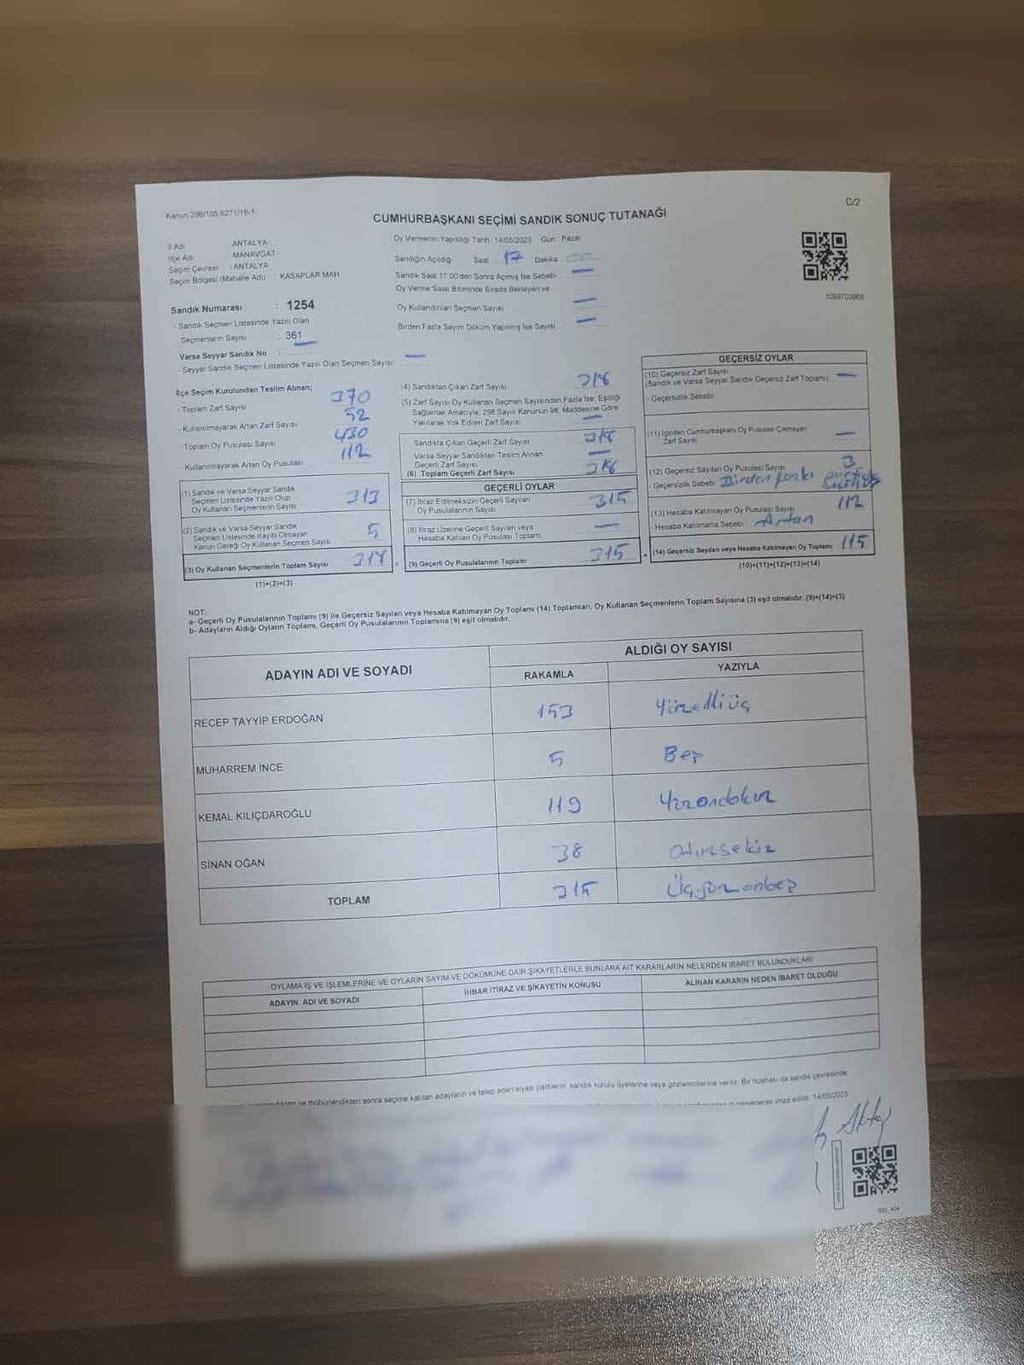 Kanun 298/105,6271/18-1
C/2
CUMHURBAŞKANI SEÇİMİ SANDIK SONUÇ TUTANAĞI
İl Adı : ANTALYA
İlçe Adı : MANAVGAT
Seçim Çevresi : ANTALYA
Seçim Bölgesi (Mahalle Adı) : KASAPLAR MAH
Sandık Numarası : 1254
- Sandık Seçmen Listesinde Yazılı Olan
Seçmenlerin Sayısı : 361
Varsa Seyyar Sandık No :
- Seyyar Sandık Seçmen Listesinde Yazılı Olan Seçmen Sayısı: —
Oy Vermenin Yapıldığı Tarih :14/05/2023 Gün : Pazar
Sandığın Açıldığı Saat : 17 Dakika : 00
Sandık Saat 17:00'den Sonra Açılmış İse Sebebi : —
Oy Verme Saati Bitiminde Sırada Bekleyen ve
Oy Kullandırılan Seçmen Sayısı : —
Birden Fazla Sayım Döküm Yapılmış İse Sayısı : —
1093703868
İlçe Seçim Kurulundan Teslim Alınan;
- Toplam Zarf Sayısı : 370
- Kullanılmayarak Artan Zarf Sayısı : 52
- Toplam Oy Pusulası Sayısı : 430
- Kullanılmayarak Artan Oy Pusulası : 112
(1) Sandık ve Varsa Seyyar Sandık
Seçmen Listesinde Yazılı Olup
Oy Kullanan Seçmenlerin Sayısı : 313
(2) Sandık ve Varsa Seyyar Sandık
Seçmen Listesinde Kayıtlı Olmayan
Kanun Gereği Oy Kullanan Seçmen Sayısı : 5
(3) Oy Kullanan Seçmenlerin Toplam Sayısı : 318
(1)+(2)=(3)
(4) Sandıktan Çıkan Zarf Sayısı : 318
(5) Zarf Sayısı Oy Kullanan Seçmen Sayısından Fazla İse, Eşitliği
Sağlamak Amacıyla, 298 Sayılı Kanunun 98. Maddesine Göre
Yakılarak Yok Edilen Zarf Sayısı : —
Sandıkta Çıkan Geçerli Zarf Sayısı : 318
Varsa Seyyar Sandıktan Teslim Alınan
Geçerli Zarf Sayısı : —
(6) Toplam Geçerli Zarf Sayısı : 318
GEÇERLİ OYLAR
(7) İtiraz Edilmeksizin Geçerli Sayılan
Oy Pusulasının Sayısı : 315
(8) İtiraz Üzerine Geçerli Sayılan veya
Hesaba Katılan Oy Pusulası Toplamı : —
(9) Geçerli Oy Pusulalarının Toplamı : 315
GEÇERSİZ OYLAR
(10) Geçersiz Zarf Sayısı
(Sandık ve Varsa Seyyar Sandık Geçersiz Zarf Toplamı) : —
- Geçersizlik Sebebi :
(11) İçinden Cumhurbaşkanı Oy Pusulası Çıkmayan
Zarf Sayısı : —
(12) Geçersiz Sayılan Oy Pusulası Sayısı : 3
- Geçersizlik Sebebi : Birden fazla
(13) Hesaba Katılmayan Oy Pusulası Sayısı : 112
- Hesaba Katılmama Sebebi : Artan
(14) Geçersiz Sayılan veya Hesaba Katılmayan Oy Toplamı : 115
(10)+(11)+(12)+(13)=(14)
NOT:
a- Geçerli Oy Pusulalarının Toplamı (9) ile Geçersiz Sayılan veya Hesaba Katılmayan Oy Toplamı (14) Toplamları, Oy Kullanan Seçmenlerin Toplam Sayısına (3) eşit olmalıdır. (9)+(14)=(3)
b- Adayların Aldığı Oyların Toplamı, Geçerli Oy Pusulalarının Toplamına (9) eşit olmalıdır.
ADAYIN ADI VE SOYADI
ALDIĞI OY SAYISI
RAKAMLA YAZIYLA
RECEP TAYYİP ERDOĞAN 153 Yüzelliüç
MUHARREM İNCE 5 Beş
KEMAL KILIÇDAROĞLU 119 Yüzondokuz
SİNAN OĞAN 38 Otuzsekiz
TOPLAM 315 Üçyüzonbeş
OYLAMA İŞ VE İŞLEMLERİNE VE OYLARIN SAYIM VE DÖKÜMÜNE DAİR ŞİKAYETLERLE BUNLARA AİT KARARLARIN NELERDEN İBARET BULUNDUKLARI
ADAYIN ADI VE SOYADI İHBAR İTİRAZ VE ŞİKAYETİN KONUSU ALINAN KARARIN NEDEN İBARET OLDUĞU
mühürlendikten sonra seçime katılan adayların ve talep eden siyasi partilerin, sandık kurulu üyelerine veya gözlemcilerine verilir. Bir nüshası da sandık çevresinde
imza edildi. 14/05/2023